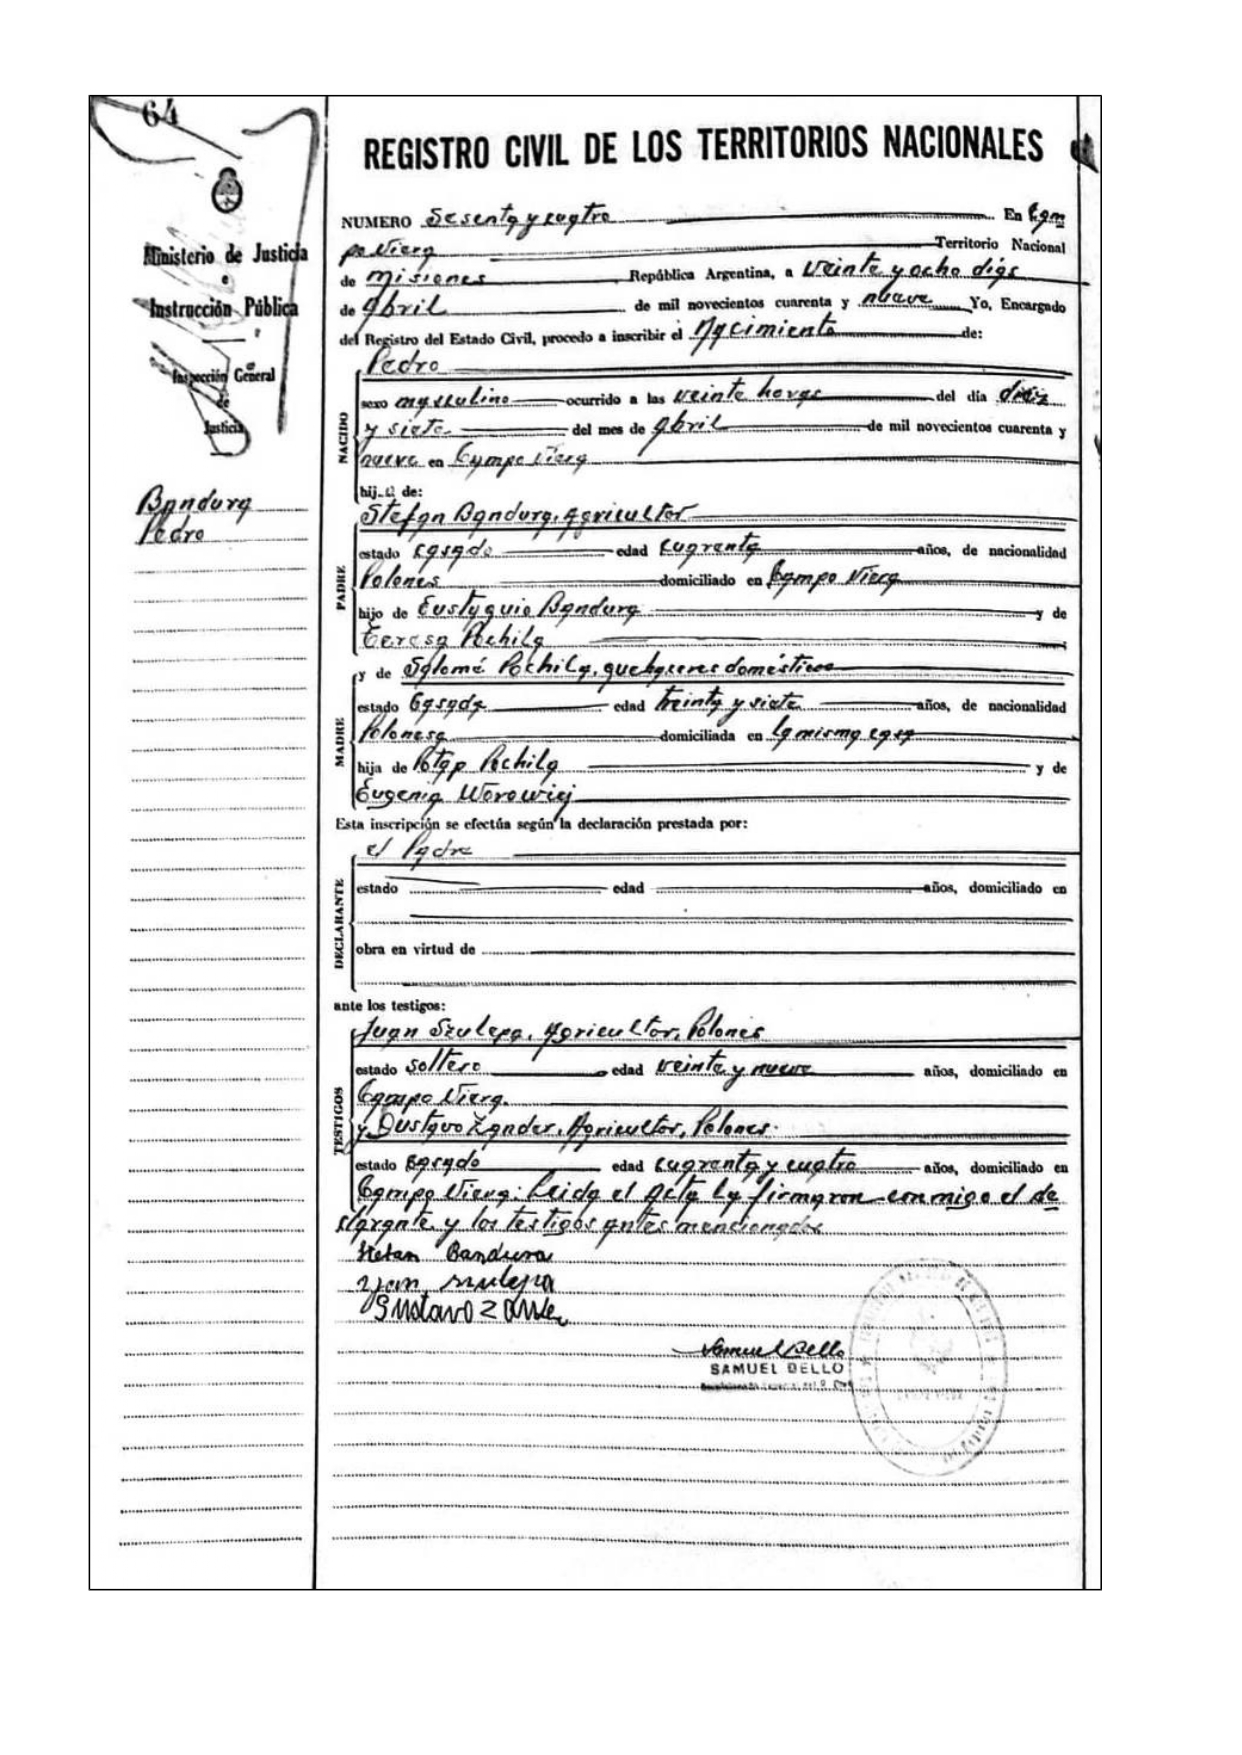 64
REGISTRO CIVIL DE LOS TERRITORIOS NACIONALES
Ministerio de Justicia
e
Instrucción Pública
Inspección General
de
Justicia
Bandura
Pedro
NUMERO Sesenta y cuatro En Cam
po Viera Territorio Nacional
de Misiones República Argentina, a veinte y ocho días
de Abril de mil novecientos cuarenta y nueve Yo, Encargado
del Registro del Estado Civil, procedo a inscribir el Nacimiento de:
NACIDO
Pedro
sexo masculino ocurrido a las veinte horas del día diez
y siete del mes de Abril de mil novecientos cuarenta y
nueve en Campo Viera
hijo de:
PADRE
Stefan Bandura, Agricultor
estado casado edad cuarenta años, de nacionalidad
Polones domiciliado en Campo Viera
hijo de Eustaquio Bandura y de
Teresa Pochila
MADRE
y de Salomé Pochila, quehaceres domésticos
estado Casada edad treinta y siete años, de nacionalidad
Polonesa domiciliada en la misma casa
hija de Potap Pochila y de
Eugenia Worowiej
Esta inscripción se efectúa según la declaración prestada por:
DECLARANTE
el Padre
estado edad años, domiciliado en
obra en virtud de
ante los testigos:
TESTIGOS
Juan Szulepa, Agricultor, Polones
estado soltero edad veinte y nueve años, domiciliado en
Campo Viera.
y Gustavo Zander, Agricultor, Polones.
estado Casado edad cuarenta y cuatro años, domiciliado en
Campo Viera. Leida el Acta la firmaron conmigo el de
clarante y los testigos antes mencionados
Stefan Bandura
Jan Szulepa
Gustavo Zander
Samuel Bello
SAMUEL BELLO